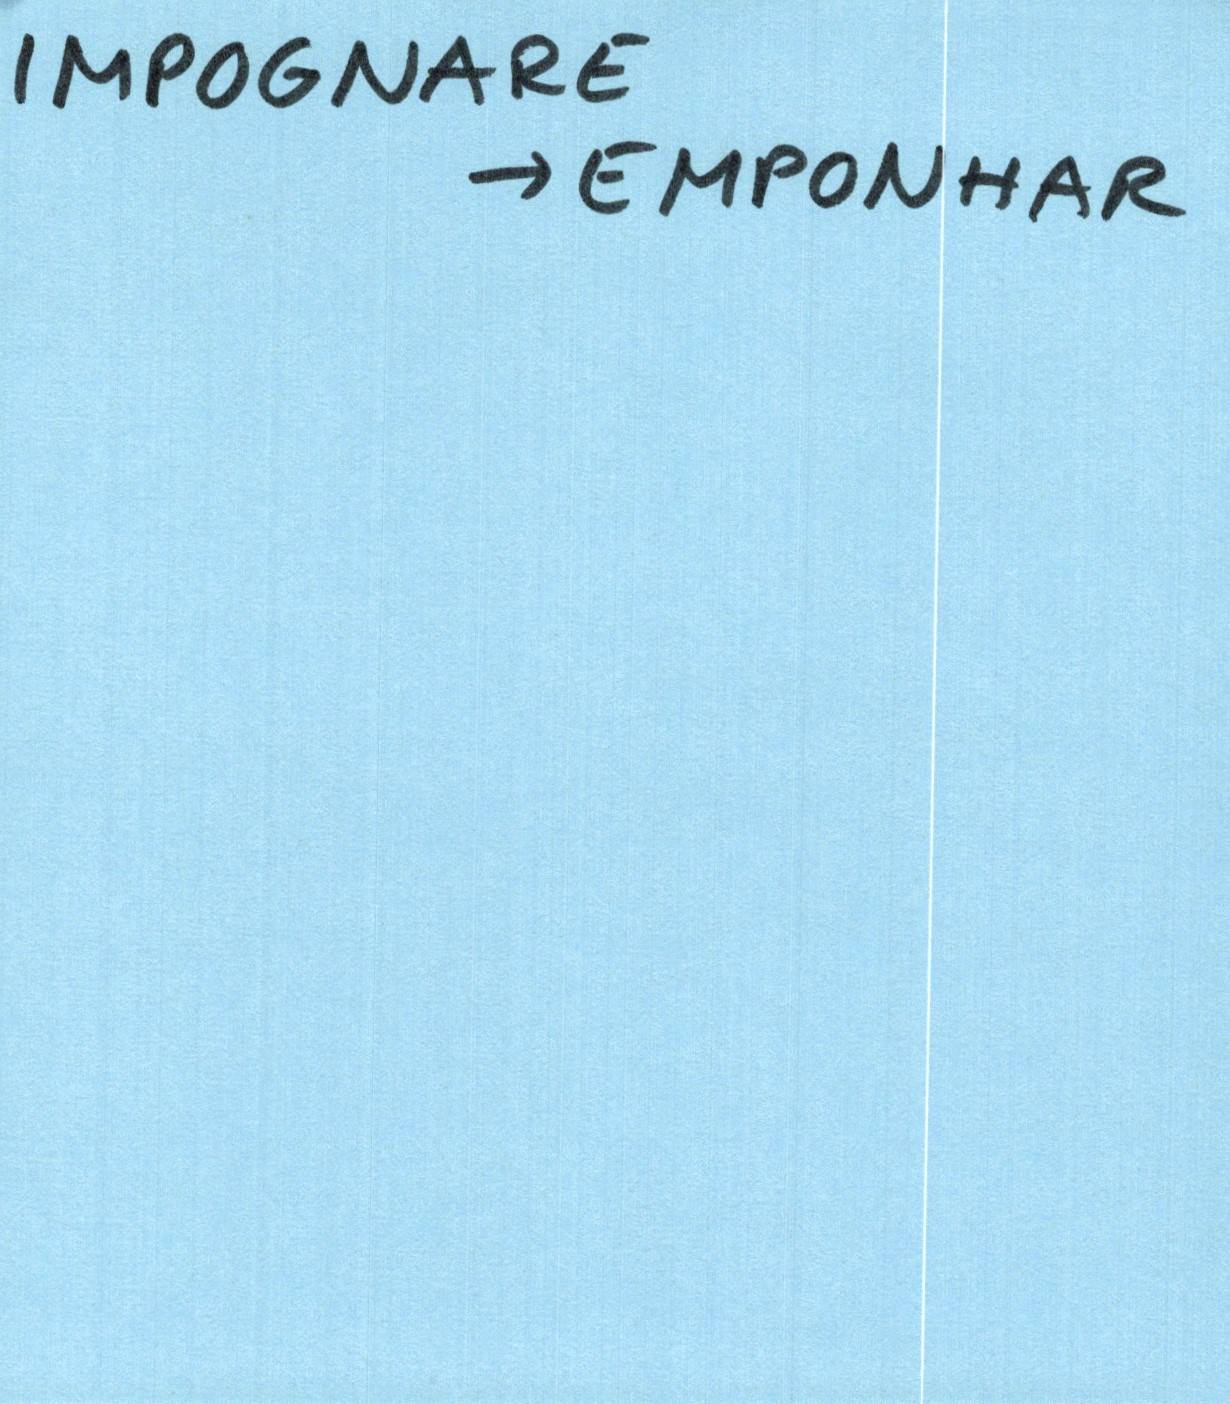 IMPOGNARE
→ EMPONHAR